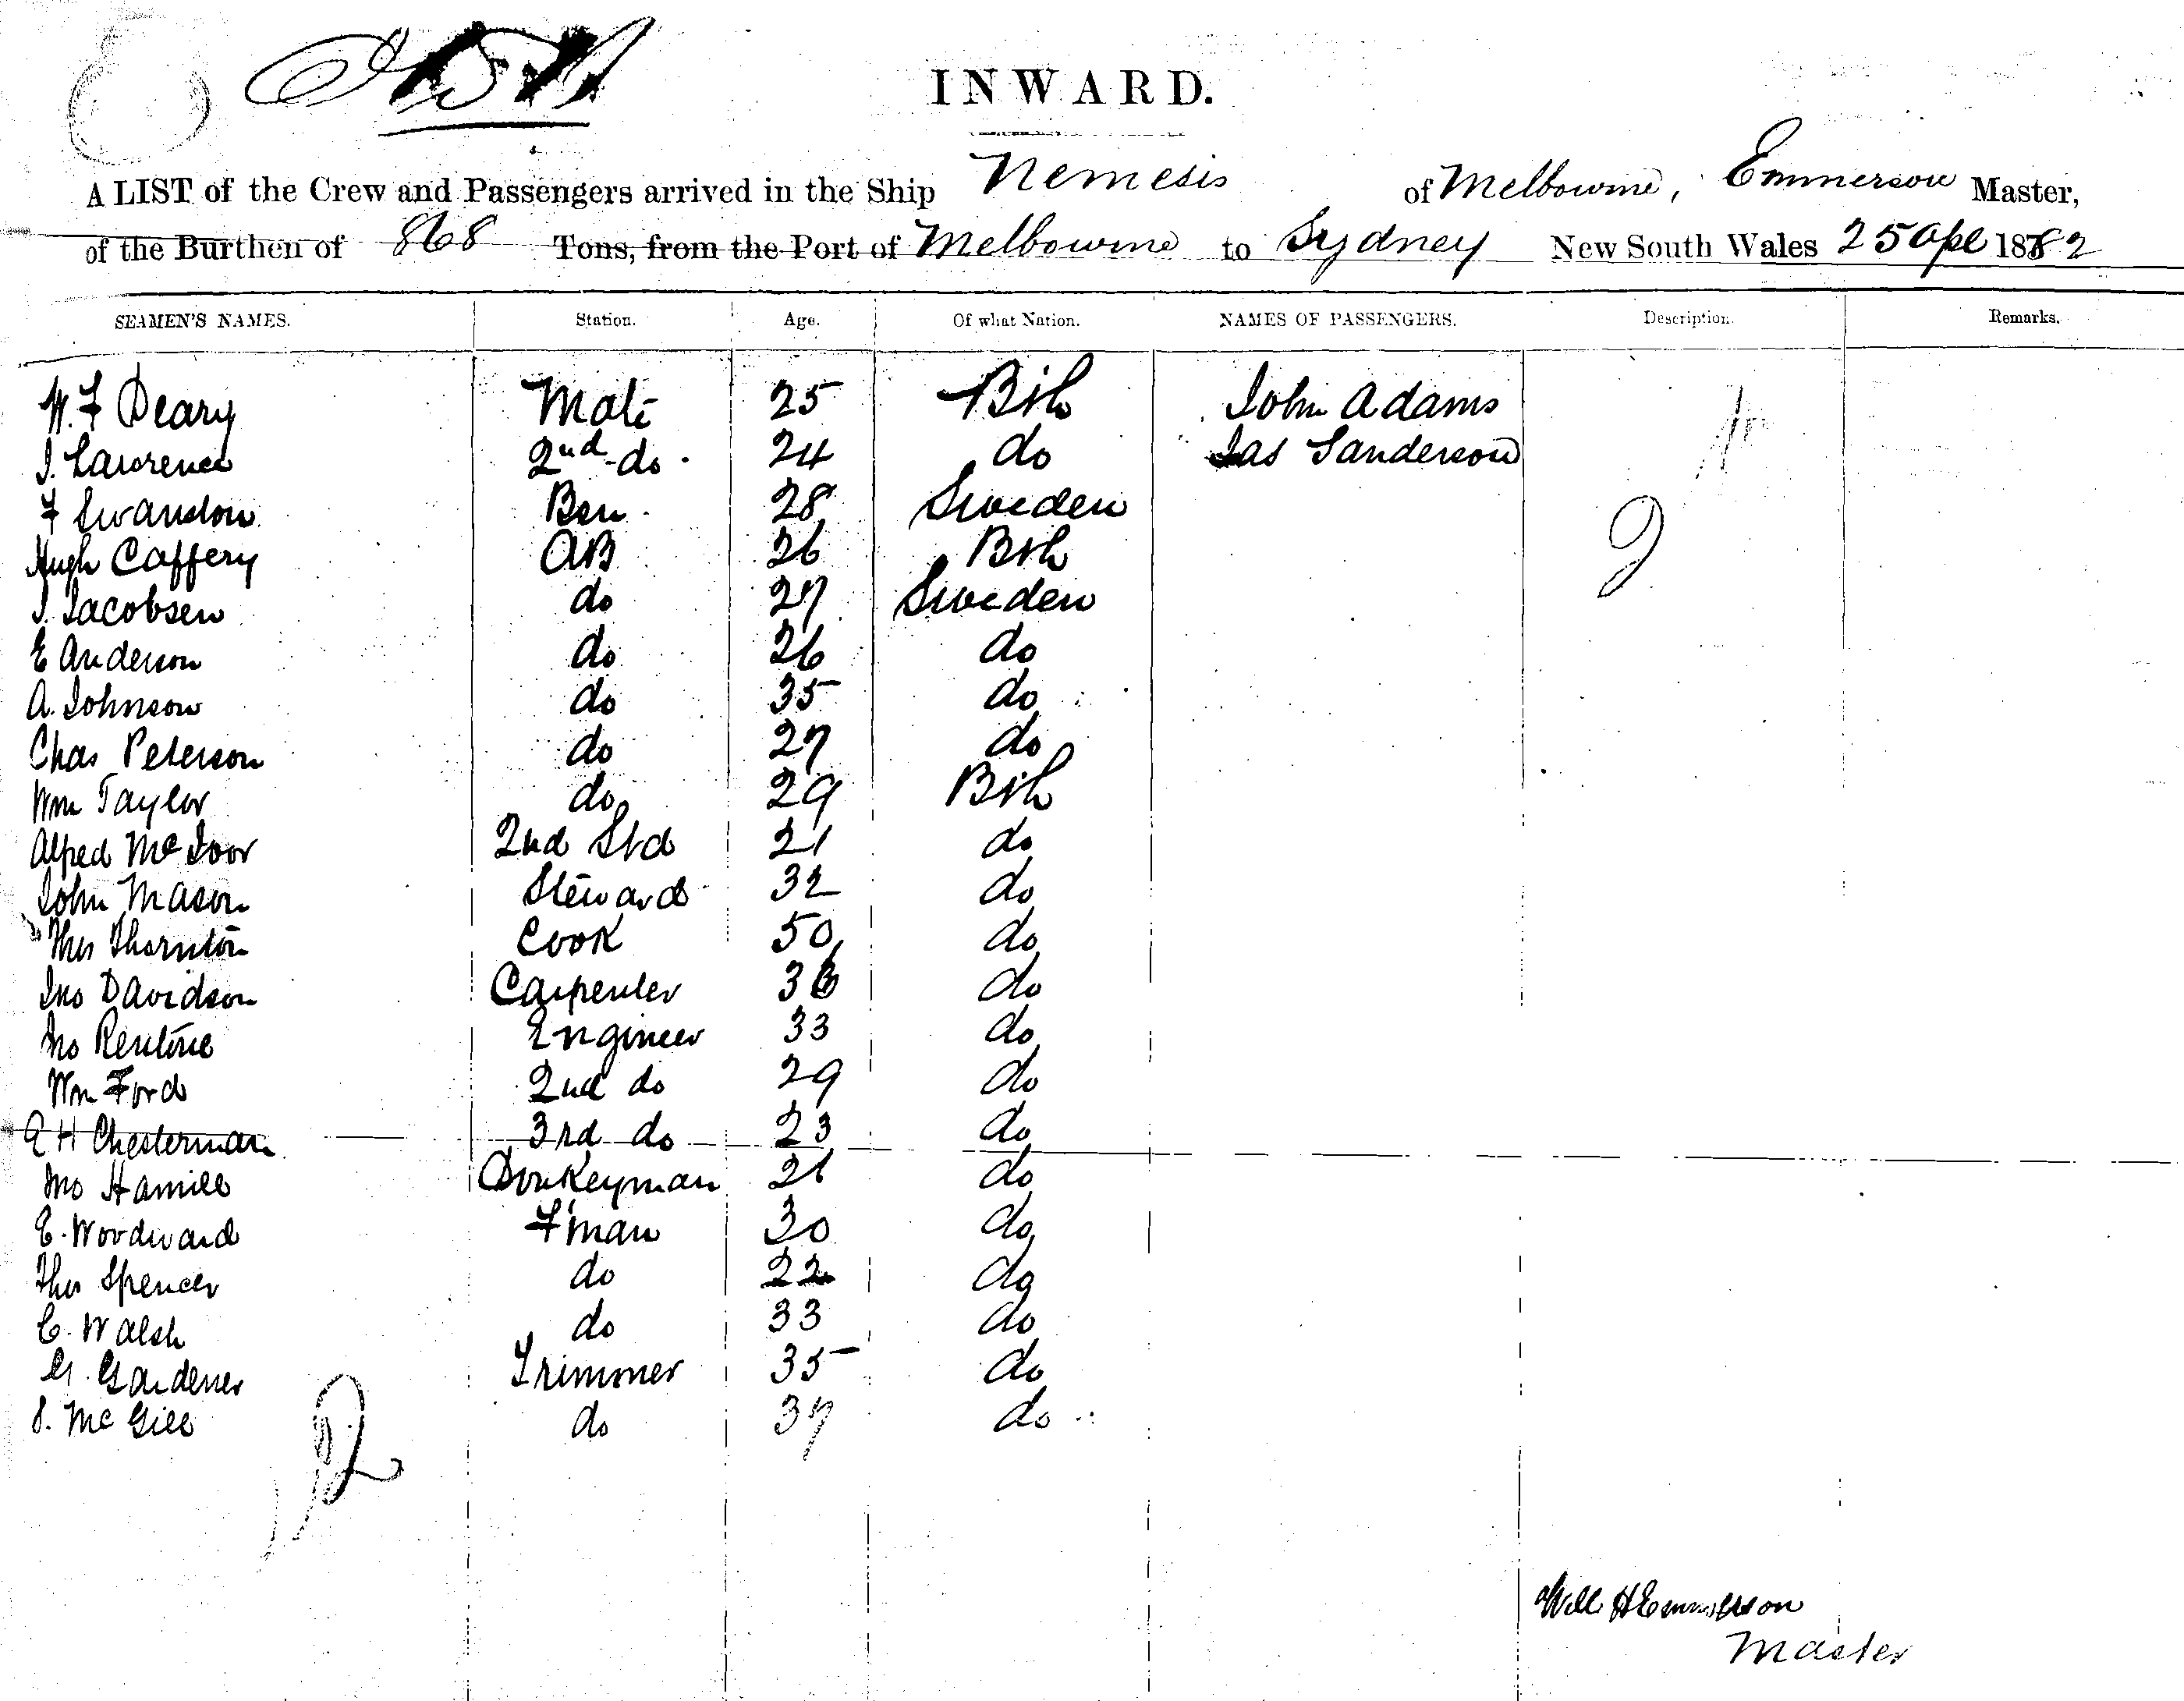 INWARD.
A LIST of the Crew and Passengers arrived in the Ship Nemesis of Melbourne, Emmerson Master,
of the Burthen of 868 Tons, from the Port of Melbourne to Sydney New South Wales 25 Apl 1882
SEAMEN'S NAMES. Station. Age. Of what Nation. NAMES OF PASSENGERS. Description. Remarks.
W. F Deary Mate 25 Bsh John Adams
J. Lawrence 2nd do 24 do Jas Sanderson
F Swanston Bsn 28 Sweden
Hugh Caffery AB 26 Bsh
J. Jacobsen do 27 Sweden
E Anderson do 26 do
A. Johnson do 35 do
Chas Peterson do 27 do
Wm Taylor do 29 Bsh
Alfred McIvor 2nd Std 21 do
John Mason Steward 32 do
Thos Thornton Cook 50 do
Jno Davidson Carpenter 36 do
Jno Rentone Engineer 33 do
Wm Ford 2nd do 29 do
E H Chesterman 3rd do 23 do
Jno Hamill Donkeyman 21 do
E. Woodward F'man 30 do
Thos Spencer do 22 do
C. Walsh do 33 do
G. Gardener Trimmer 35 do
J. McGill do 37 do
Will H Emmerson
Master